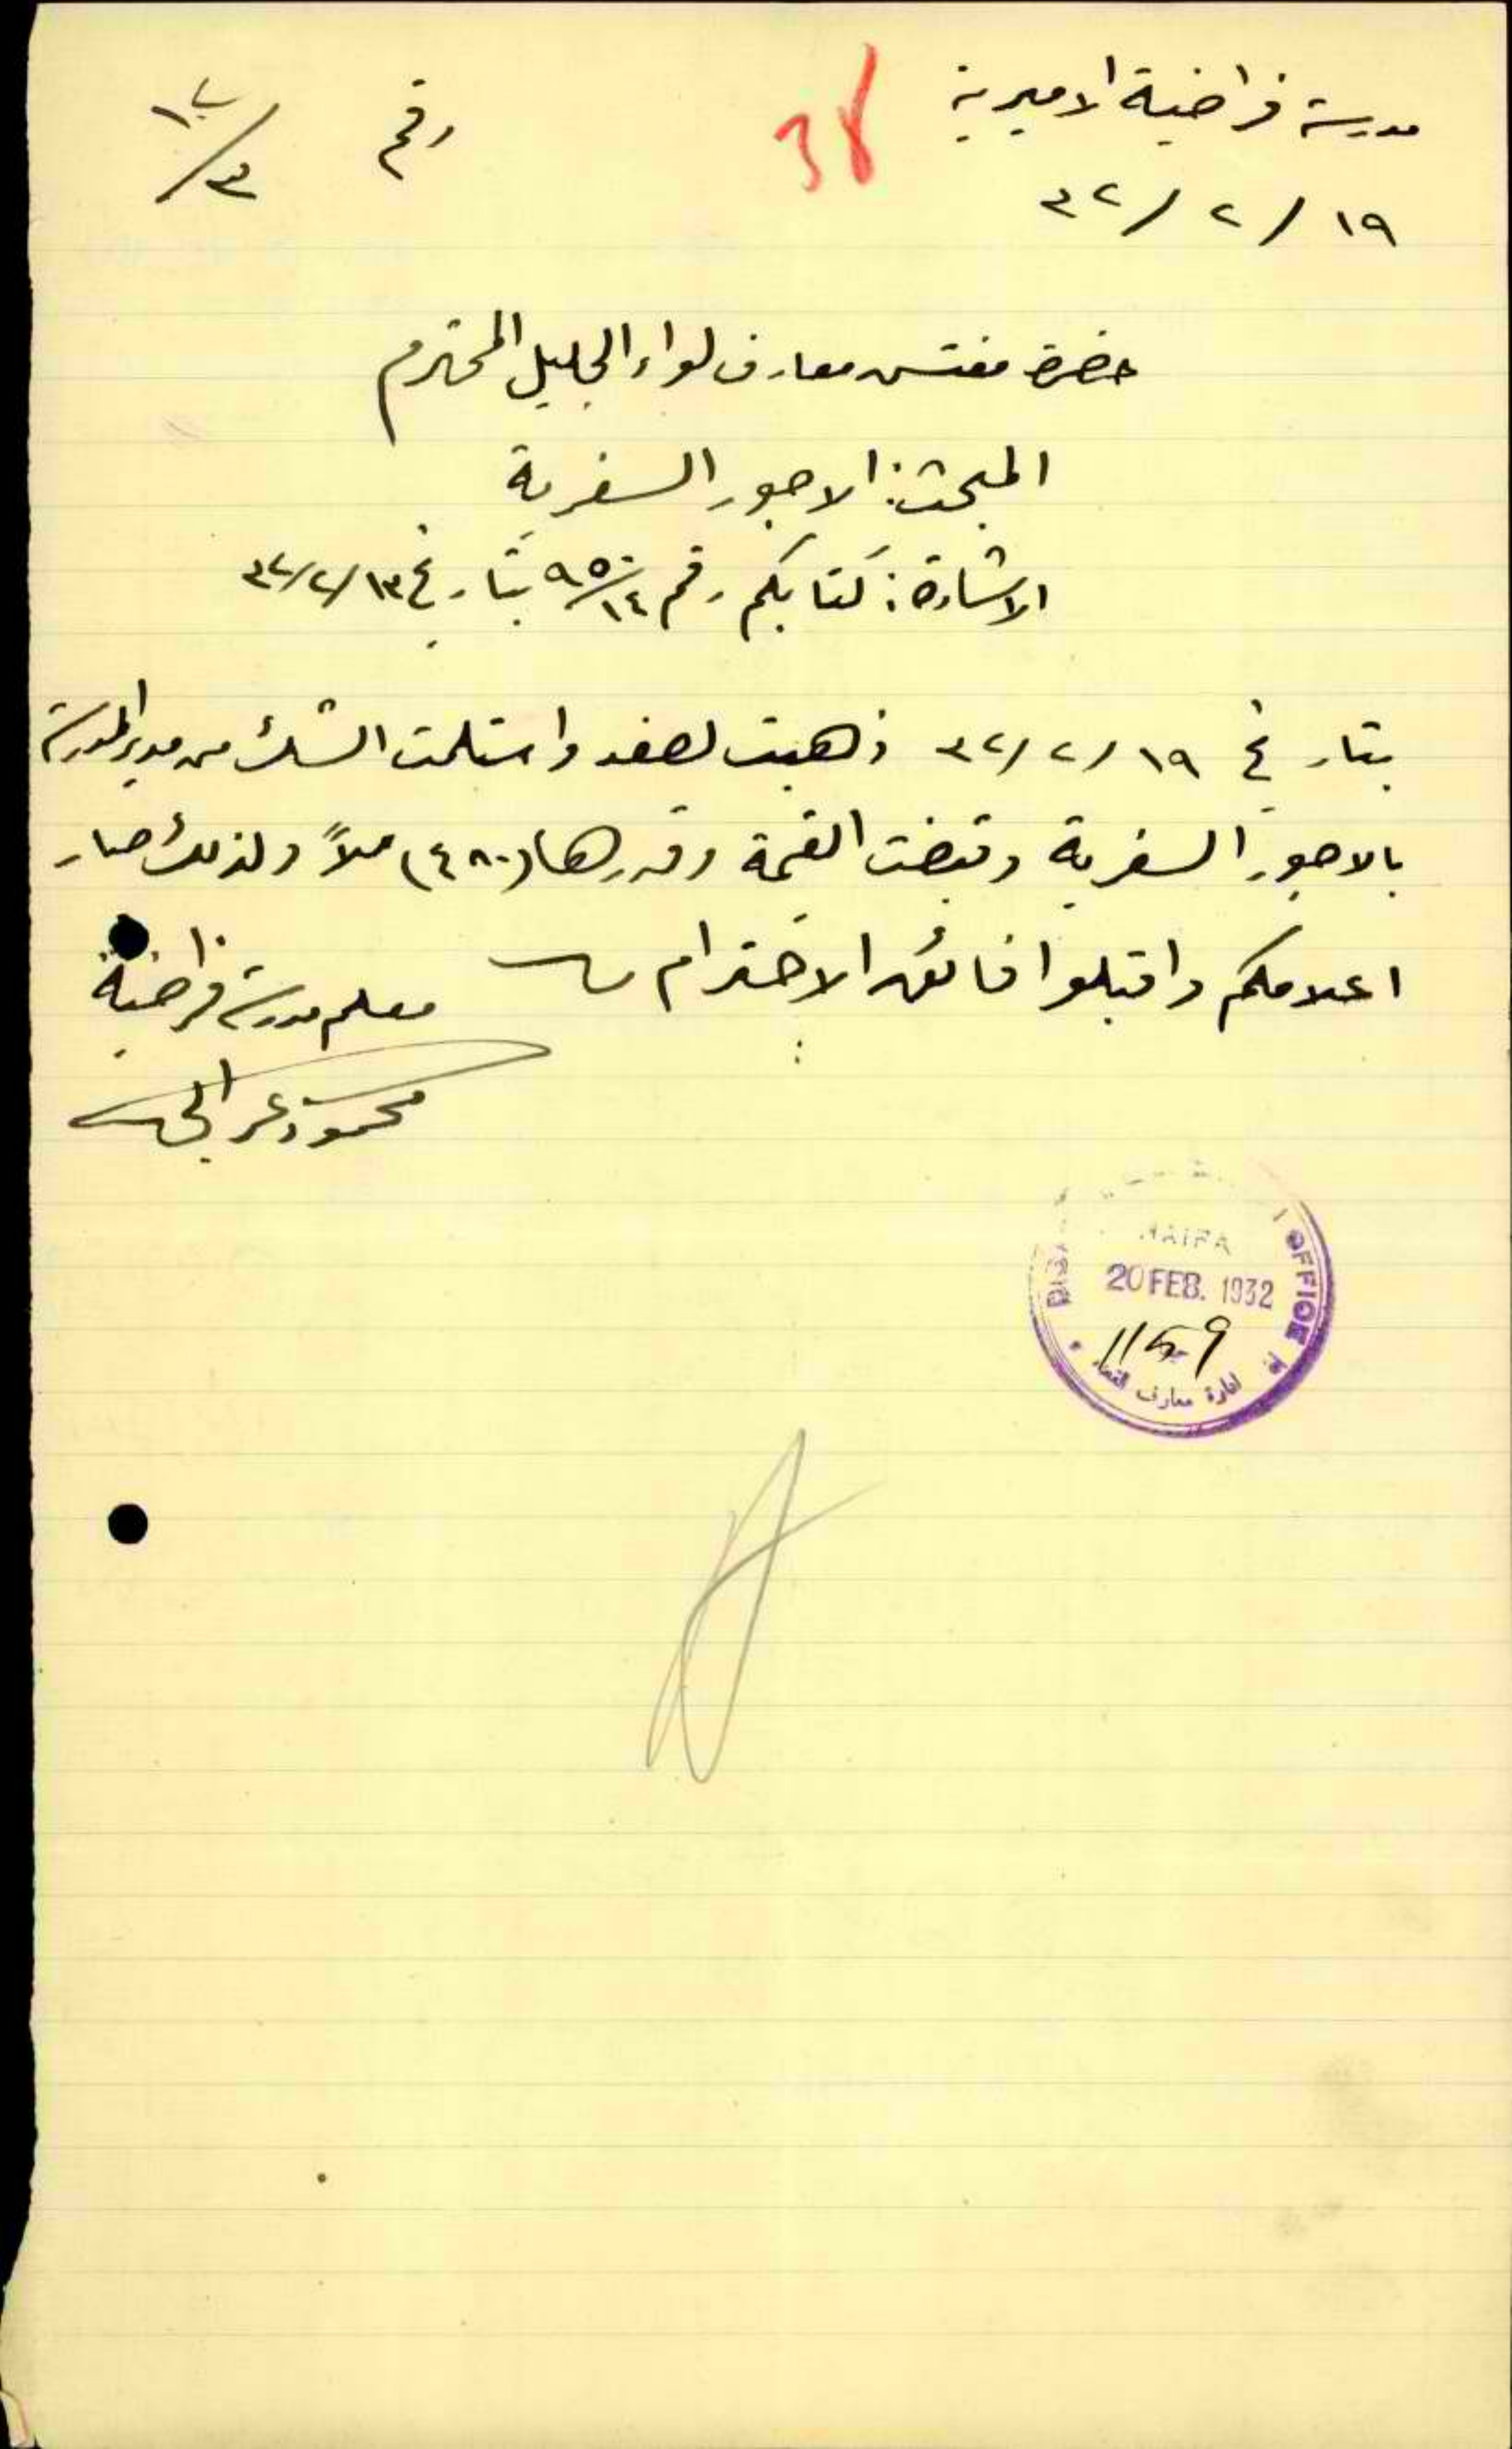 مدرسة فراضية الاميرية
١٩ / ٢ / ٣٢
38
رقم
٣
حضرة مفتش معارف لواء الجليل المحترم
المبحث: الاجور السفرية
الاشارة: كتابكم رقم ٩٥٠/١٤ بتاريخ ١٣/٢/٣٢
بتاريخ ١٩/٢/٣٢ ذهبت لصفد واستلمت الشك من مدير المدرسة
بالاجور السفرية وقبضت القيمة وقدرها (٤٨٠) ملاً ولذلك صار
اعلامكم واقبلوا فائق الاحترام
معلم مدرسة فراضية
محمود
HAIFA
OFFICE
20 FEB. 1932
ادارة معارف القضاء